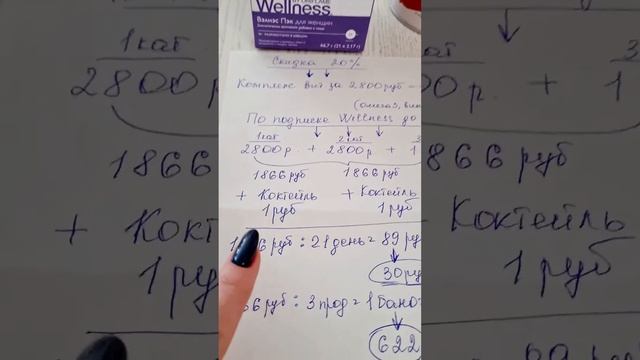 BY ORIFLAME
Wellness
Вэлнэс Пэк для женщин
66.7 г (21 x 3.17 г)
Скидка 20%
Комплекс вит за 2800 руб -
(омега 3, вит
По подписке Wellness до
1 кат 2 кат 3
2800 р. + 2800 р. + 1
1866 руб 1866 руб
+ Коктейль + Коктейль
1 руб 1 руб
6 руб : 21 день = 89 ру
30 ру
66 руб : 3 прод = 1 бано
622
1 кат
2800 р.
+ Кокт
1 ру
р. + 1
866 руб
Коктейль
1 руб